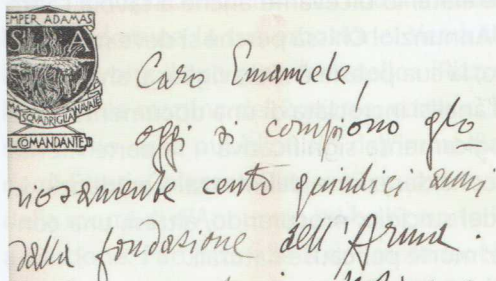 SEMPER ADAMAS
S A
Iᴬ SQUADRIGLIA NAVALE
IL COMANDANTE
Caro Emanuele,
oggi si compiono glo
riosamente cento quindici anni
dalla fondazione dell'Arma.